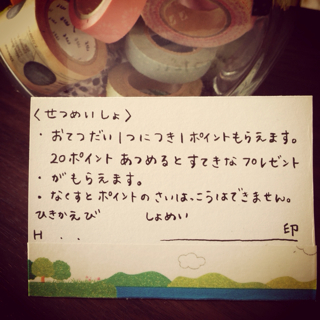 〈せつめいしょ〉
・おてつだい1つにつき1ポイントもらえます。
20ポイントあつめるとすてきなプレゼント
・がもらえます。
・なくすとポイントのさいはっこうはできません。
ひきかえび　しょめい
H . .　印